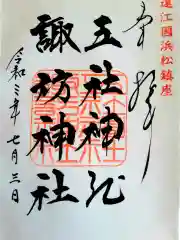 遠江国浜松鎮座
奉拝
五社神社
諏訪神社
令和三年七月三日